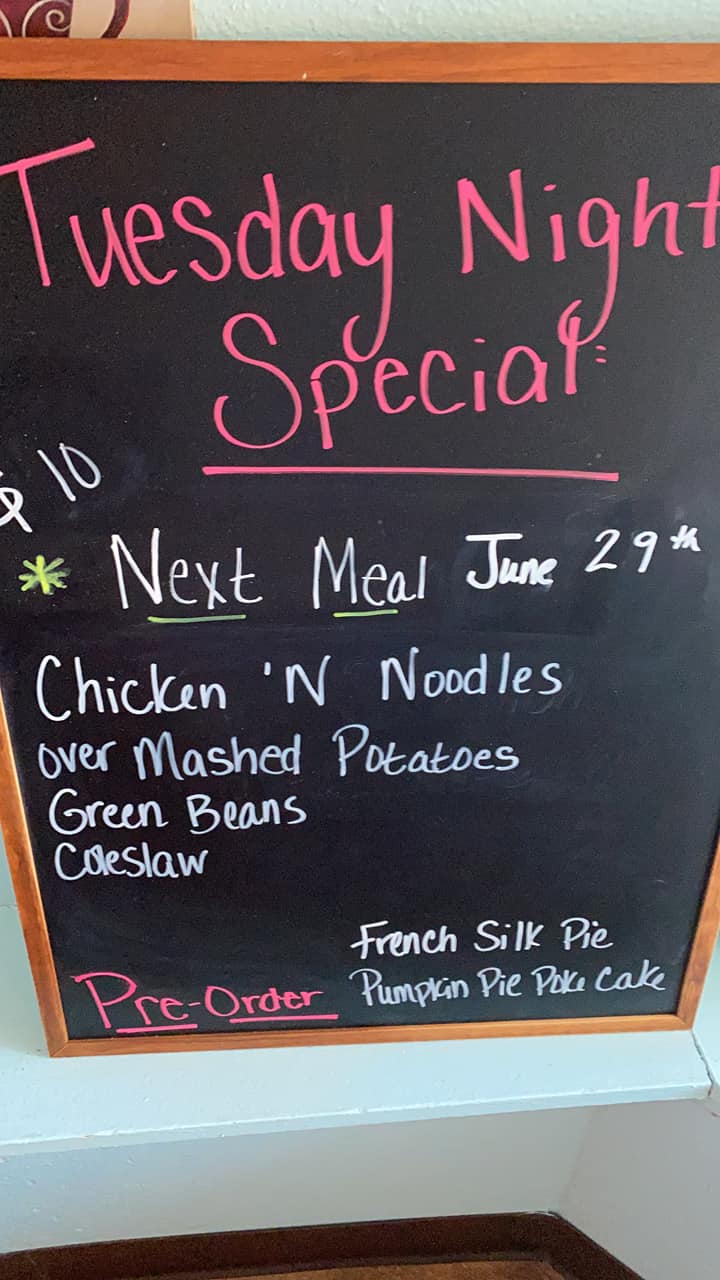 Tuesday Night
Special:
$10
* Next Meal June 29th
Chicken 'N Noodles
over Mashed Potatoes
Green Beans
Coleslaw
French Silk Pie
Pre-Order Pumpkin Pie Poke Cake